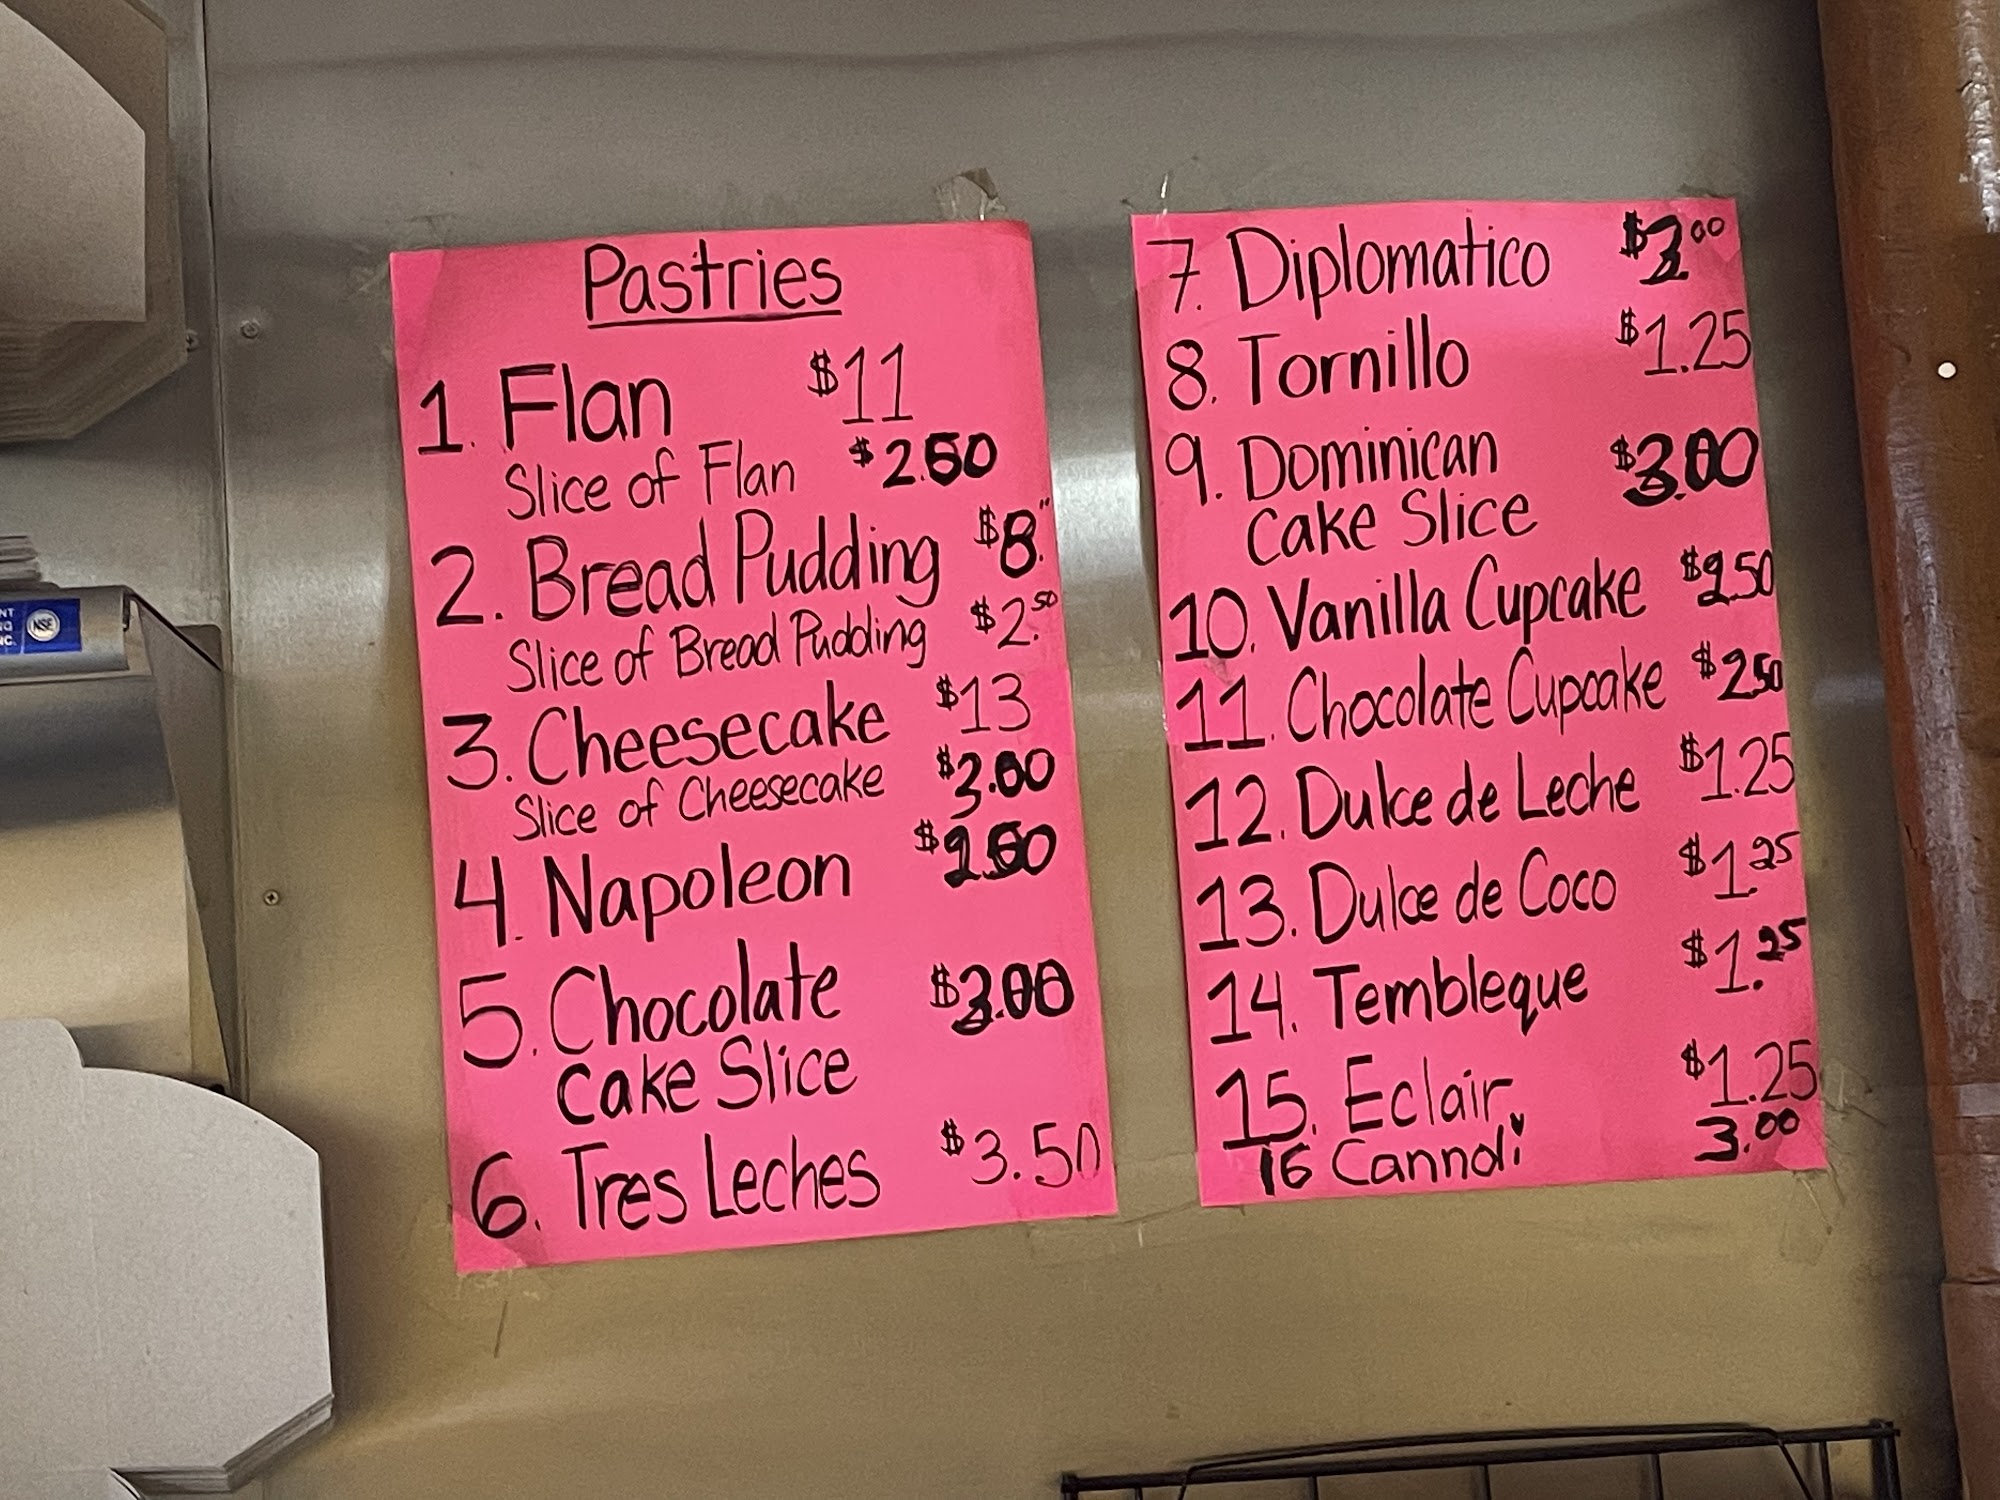 Pastries
1. Flan $11
Slice of Flan $2.50
2. Bread Pudding $8.
Slice of Bread Pudding $2.50
3. Cheesecake $13
Slice of Cheesecake $3.00
4. Napoleon $2.50
5. Chocolate $3.00
Cake Slice
6. Tres Leches $3.50
7. Diplomatico $3.00
8. Tornillo $1.25
9. Dominican $3.00
Cake Slice
10. Vanilla Cupcake $2.50
11. Chocolate Cupcake $2.50
12. Dulce de Leche $1.25
13. Dulce de Coco $1.25
14. Tembleque $1.25
15. Eclair $1.25
16 Cannoli 3.00
NSF